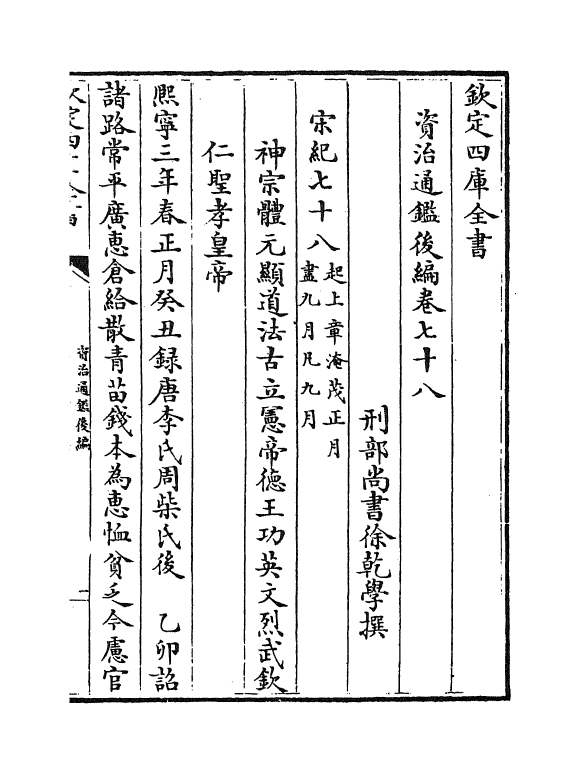 欽定四庫全書
資治通鑑後編卷七十八
刑部尚書徐乾學撰
宋紀七十八起上章淹茂正月盡九月凡九月
神宗體元顯道法古立憲帝德王功英文烈武欽
仁聖孝皇帝
熈寧三年春正月癸丑録唐李氏周柴氏後　乙卯詔
諸路常平廣惠倉給散青苗錢本為惠恤貧乏今慮官
資治通鑑後編